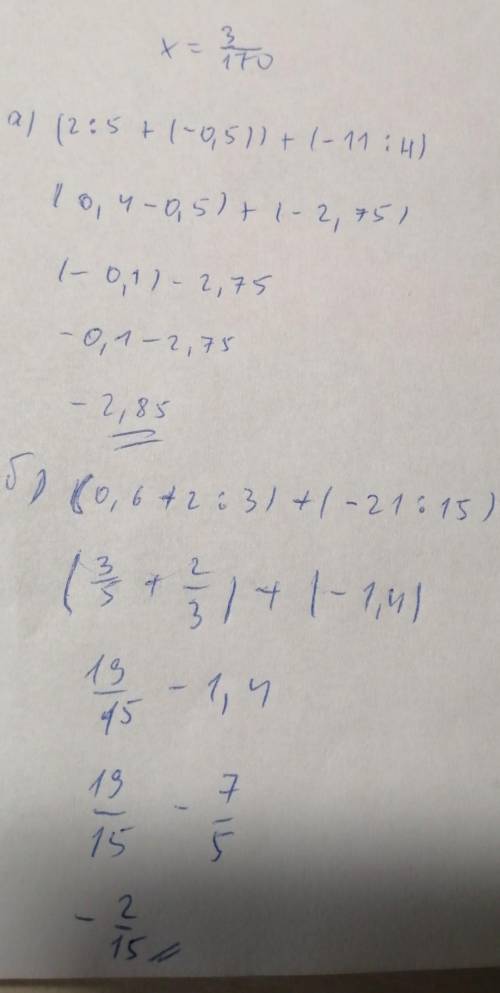 x = 3/170
а) (2:5 + (-0,5)) + (-11:4)
(0,4-0,5) + (-2,75)
(-0,1) - 2,75
-0,1-2,75
-2,85
б) (0,6+2:3) + (-21:15)
(3/5 + 2/3) + (-1,4)
19/15 - 1,4
19/15 - 7/5
-2/15